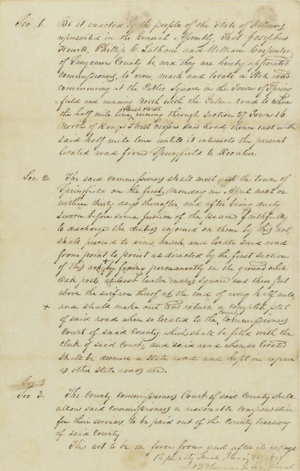 Sec 1. Be it enacted by the people of the State of Illinois
represented in the General Assembly, That Josephus
Hewett, Phillip C. Latham and William Carpenter
of Sangamon County be, and they are hereby appointed
Commissioners, to view, mark and locate a State road
commencing at the Public Square in the Town of Spring
field and running North with the road to where
the half mile line running through Section 27 Town 16
North of Range 5 West crosses said Road thence east with
said half mile line until it intersects the present
located road from Springfield to Decatur.
Sec 2. The said commissioners shall meet at the town of
Springfield on the first Monday in April next or
within thirty days thereafter and after being duly
sworn before some justice of the peace faithfully
to discharge the duties enjoined on them by this act
shall proceed to view, mark and locate said road
from point to point as directed by the first section
of this act, by fixing permanently in the ground white
oak posts, at least twelve inches square and three feet
above the surface thereof at the end of every half mile
and shall make out and return a complete plat
of said road when so located to the County Commissioners
Court of said County, which shall be filed with the
clerk of said Court, and said road when so located
shall be deemed a state road and kept in repair
as other state roads are.
Sec 3.
Sec 3. The County Commissioners Court of said County shall
allow said Commissioners a reasonable compensation
for their services to be paid out of the County treasury
of said County
This act to be in force from and after its passage